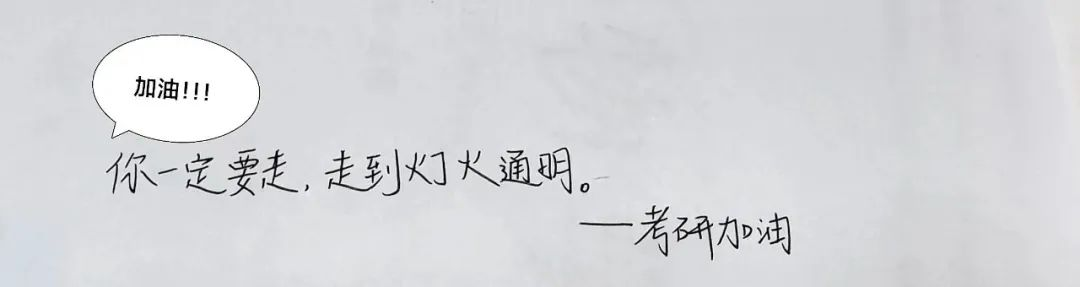 加油!!!
你一定要走，走到灯火通明。
——考研加油